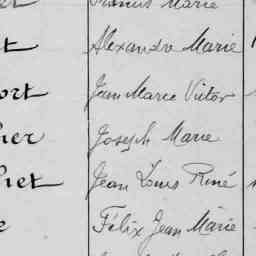 Marie
t Alexandre Marie
ort Jean Marie Victor
her Joseph Marie
et Jean Louis René
e Félix Jean Marie